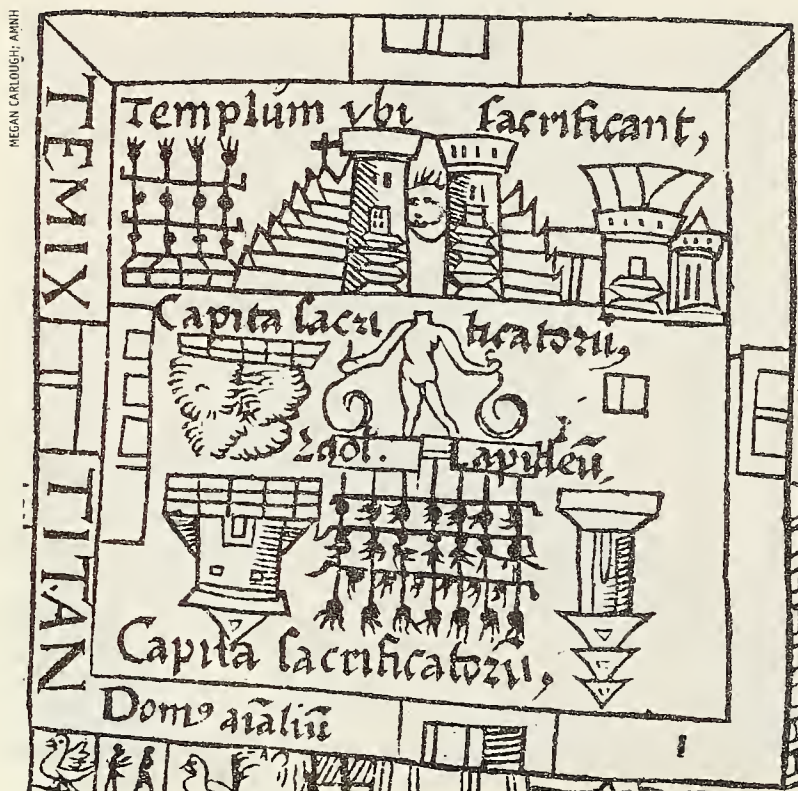 MEGAN CARLOUGH; AMNH
TEMIX
TITAN
Templum vbi sacrificant,
Capita sacri ficatorū,
Idol. Lapideū,
Capita sacrificatorū,
Domꝰ aīaliū